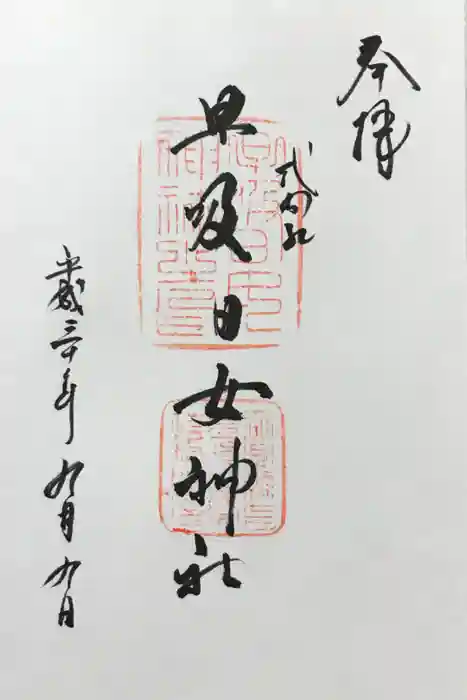 奉拝
式内社
早吸日女神社
平成三十年九月九日